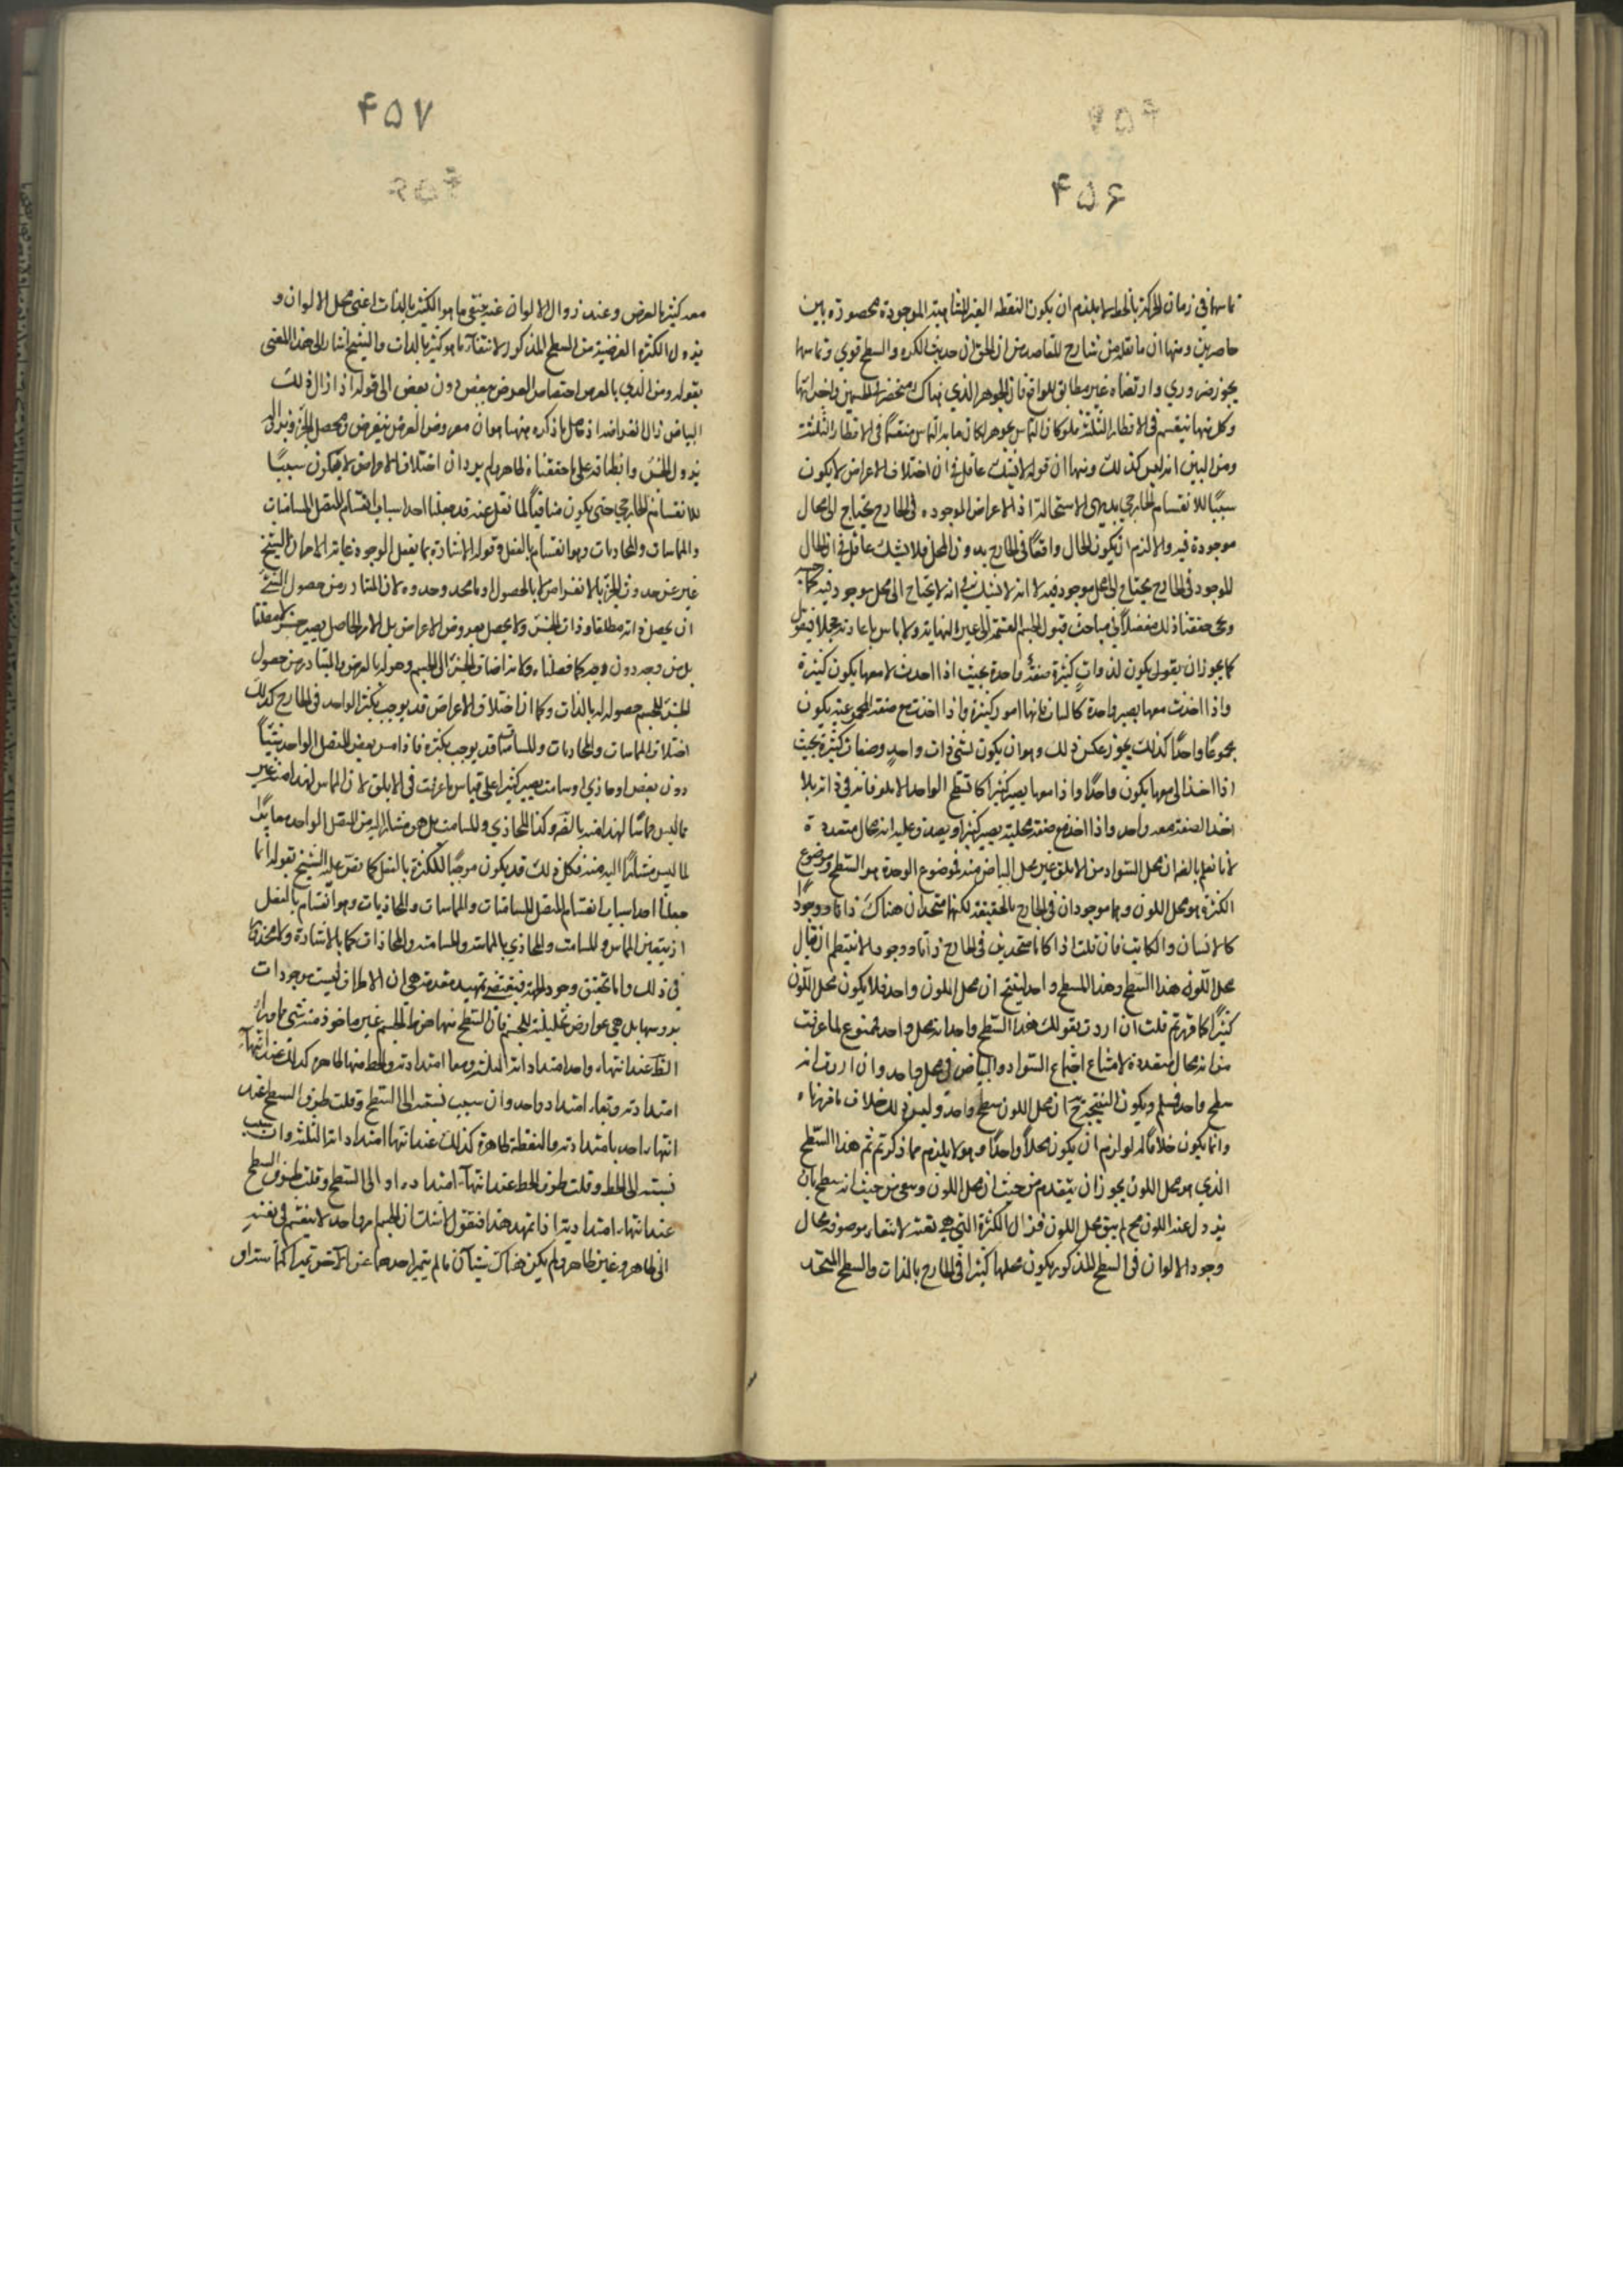 ۴۵۶
تماسها في زمان الحركة بالخط لا يلزم ان يكون النقطة الغير المتناهية الموجودة محصورة بين
حاصرين ومنها ان ما نقله من شارح المقاصد من ان الحق ان حديث الكرة والسطح قوي وتماسهما
يجوز ضروري وارتضاه غير مطابق للواقع فان الجوهر الذي هناك منحصر في الجسمين
وكل منهما ينقسم في الاقطار الثلثة فلو كان التماس بجوهر لكان ما به التماس منقسما في الاقطار الثلثة
ومن البين انه ليس كذلك ومنها ان قوله لا يشك عاقل في ان اختلاف الاعراض لا يكون
سببا للانقسام الخارجي بديهي الاستحالة اذ الاعراض الموجودة في الخارج يحتاج الى محال
موجودة فيه والا لزم ان يكون الحال واقعا في الخارج بدون المحل فلا يشك عاقل في ان الحال
الموجود في الخارج يحتاج الى محل موجود فيه لا انه لا يشك في انه لا يحتاج الى محل موجود فيه
ونحن حققنا ذلك مفصلا في مباحث قبول الجسم القسمة الى غير النهاية ولا باس باعادته مجملا فنقول
كما يجوز ان يكون لذوات كثيرة صفة واحدة بحيث اذا اخذت لا معها يكون كثيرة
واذا اخذت معها يصير واحدة كالبيان فانها امور كثيرة واذا اخذت مع صفة المجموعية يكون
مجموعا واحدا كذلك يجوز عكس ذلك وهو ان يكون لشيء ذات واحد وصفات كثيرة بحيث
اذا اخذ لا معها يكون واحدا واذا معها يصير كثيرا كالسطح الواحد الابلق فانه في ذاته بلا
اخذ الصفة معه واحد واذا اخذ مع صفة محلية يصير كثيرا ويصدق عليه انه محال متعددة
لانا نعلم بالضرورة ان محل السواد من الابلق غير محل البياض منه فموضوع الوحدة هو السطح وموضوع
الكثرة هو محل اللون وهما موجودان في الخارج بالحقيقة لكنهما متحدان هناك ذاتا ووجودا
كالانسان والكاتب فان قلت اذا كانا متحدين في الخارج ذاتا ووجودا لا ينتظم ان يقال
محل اللون هذا السطح وهذا السطح واحد لينتج ان محل اللون واحد فلا يكون محل اللون
كثيرا كما قررتم قلت ان اردت بقولك هذا السطح واحد انه محل واحد فممنوع لما عرفت
من انه محال متعددة لامتناع اجتماع السواد والبياض في محل واحد وان اردت انه
سطح واحد فمسلم ويكون النتيجة ح ان محل اللون سطح واحد وليس ذلك خلاف ما قررناه
وانما يكون خلافا له لو لزم ان يكون محلا واحدا وهو لا يلزم مما ذكرتم ثم هذا السطح
الذي هو محل اللون يجوز ان ينقدم من حيث ان محل اللون ويبقى من حيث انه سطح بان
يزول عنه اللون ح لم يبق محل اللون فزال الكثرة التي هي نعته لانتفاء موصوفه محال
وجود الالوان في السطح المذكور يكون محلها كثيرا في الخارج بالذات والسطح المتحد
۴۵۷
معه كثير بالعرض وعند زوال الالوان عنه ينتفي ما هو الكثير بالذات اعني محل الالوان و
يزول الكثرة العرضية من السطح المذكور لانتفاء ما هو كثير بالذات والشيخ اشار الى هذا المعنى
بقوله ومن الذي بالعرض اختصاص العرض ببعض دون بعض الى قوله اذا زال ذلك
البياض زال افتراضه اذ حاصل ما ذكره منهما هو ان معروض العرض ينفرض ويحصل الجزء ويزول
يزول الجزء وانطباقه على ما حققناه ظاهر ولم يرد ان اختلاف الاعراض لا يكون سببا
للانقسام الخارجي حتى يكون منافيا لما نقل عنه قد جعلنا احد اسباب انقسام المتصل المسامتات
والمماسات والمحاذيات وهو انقسام بالفعل وقوله الاشارة بما يفعل الوجود غاية الامر ان الشيخ
عبر عن حدوث الجزء بالانفراض لا بالحصول او ما يحد وحدوه لان المتبادر من حصول الشيء
ان يحصل ذاته مطلقا وذات الجزء ولا يحصل بعروض الاعراض بل الامر الحاصل يصير جزءا لا مطلقا
بل من وجه دون وجه كما فصلناه ولانه اضاف الجزء الى الجسم وهو له بالعرض والمتبادر من حصول
الجزء للجسم حصوله له بالذات وكما ان اختلاف الاعراض قد يوجب تكثر الواحد في الخارج كذلك
اختلاف المماسات والمحاذيات والمسامتات قد يوجب تكثره فاذا مس بعض المتصل الواحد شيئا
دون بعض او حاذى او سامت يصير كثيرا على قياس ما عرفت في الابلق لان المماس لهذا منه غير
ما ليس مماسا لهذا منه بالضرورة وكذا المحاذي والمسامت بل هو مشار اليه من المتصل الواحد مغاير
لما ليس مشارا اليه منه فكل ذلك قد يكون موجبا للكثرة بالفعل كما نص عليه الشيخ بقوله انا
جعلنا احد اسباب انقسام المتصل المسامتات والمماسات والمحاذيات وهو انقسام بالفعل
اذ يتعين المماس والمسامت والمحاذي بالمماسة والمسامتة والمحاذات كما بالاشارة
في ذلك واما تحقيق وجود فيقتضي تمهيد مقدمة هي ان الاطراف ليست موجودات
برؤسها بل هي عوارض تحليلية للجسم فان السطح منها هو الجسم غير ماخوذ منه شيء ما وراء
الظاهر عند انتهاء واحد امتداداته الثلثة ومعا امتداديه والخط منها الظاهر كذلك عند انتهاء
امتداديه وبقاء امتداد واحد وان سبب نسبته الى السطح وقلت طرف السطح عند
انتهاء احد امتداديه والنقطة ظاهرة كذلك عند انتهاء امتداداته الثلثة وان سبب
نسبته الى الخط وقلت طرف الخط عند انتهاء امتداده او الى السطح وقلت طرف السطح
عند انتهاء امتداديه اذا تمهد هذا فنقول لا شك ان الجسم امر واحد لا ينقسم في نفسه
الى ظاهر وغير ظاهر ولم يكن هناك شيآن ما لم يتميز احدهما عن الآخر تميزا